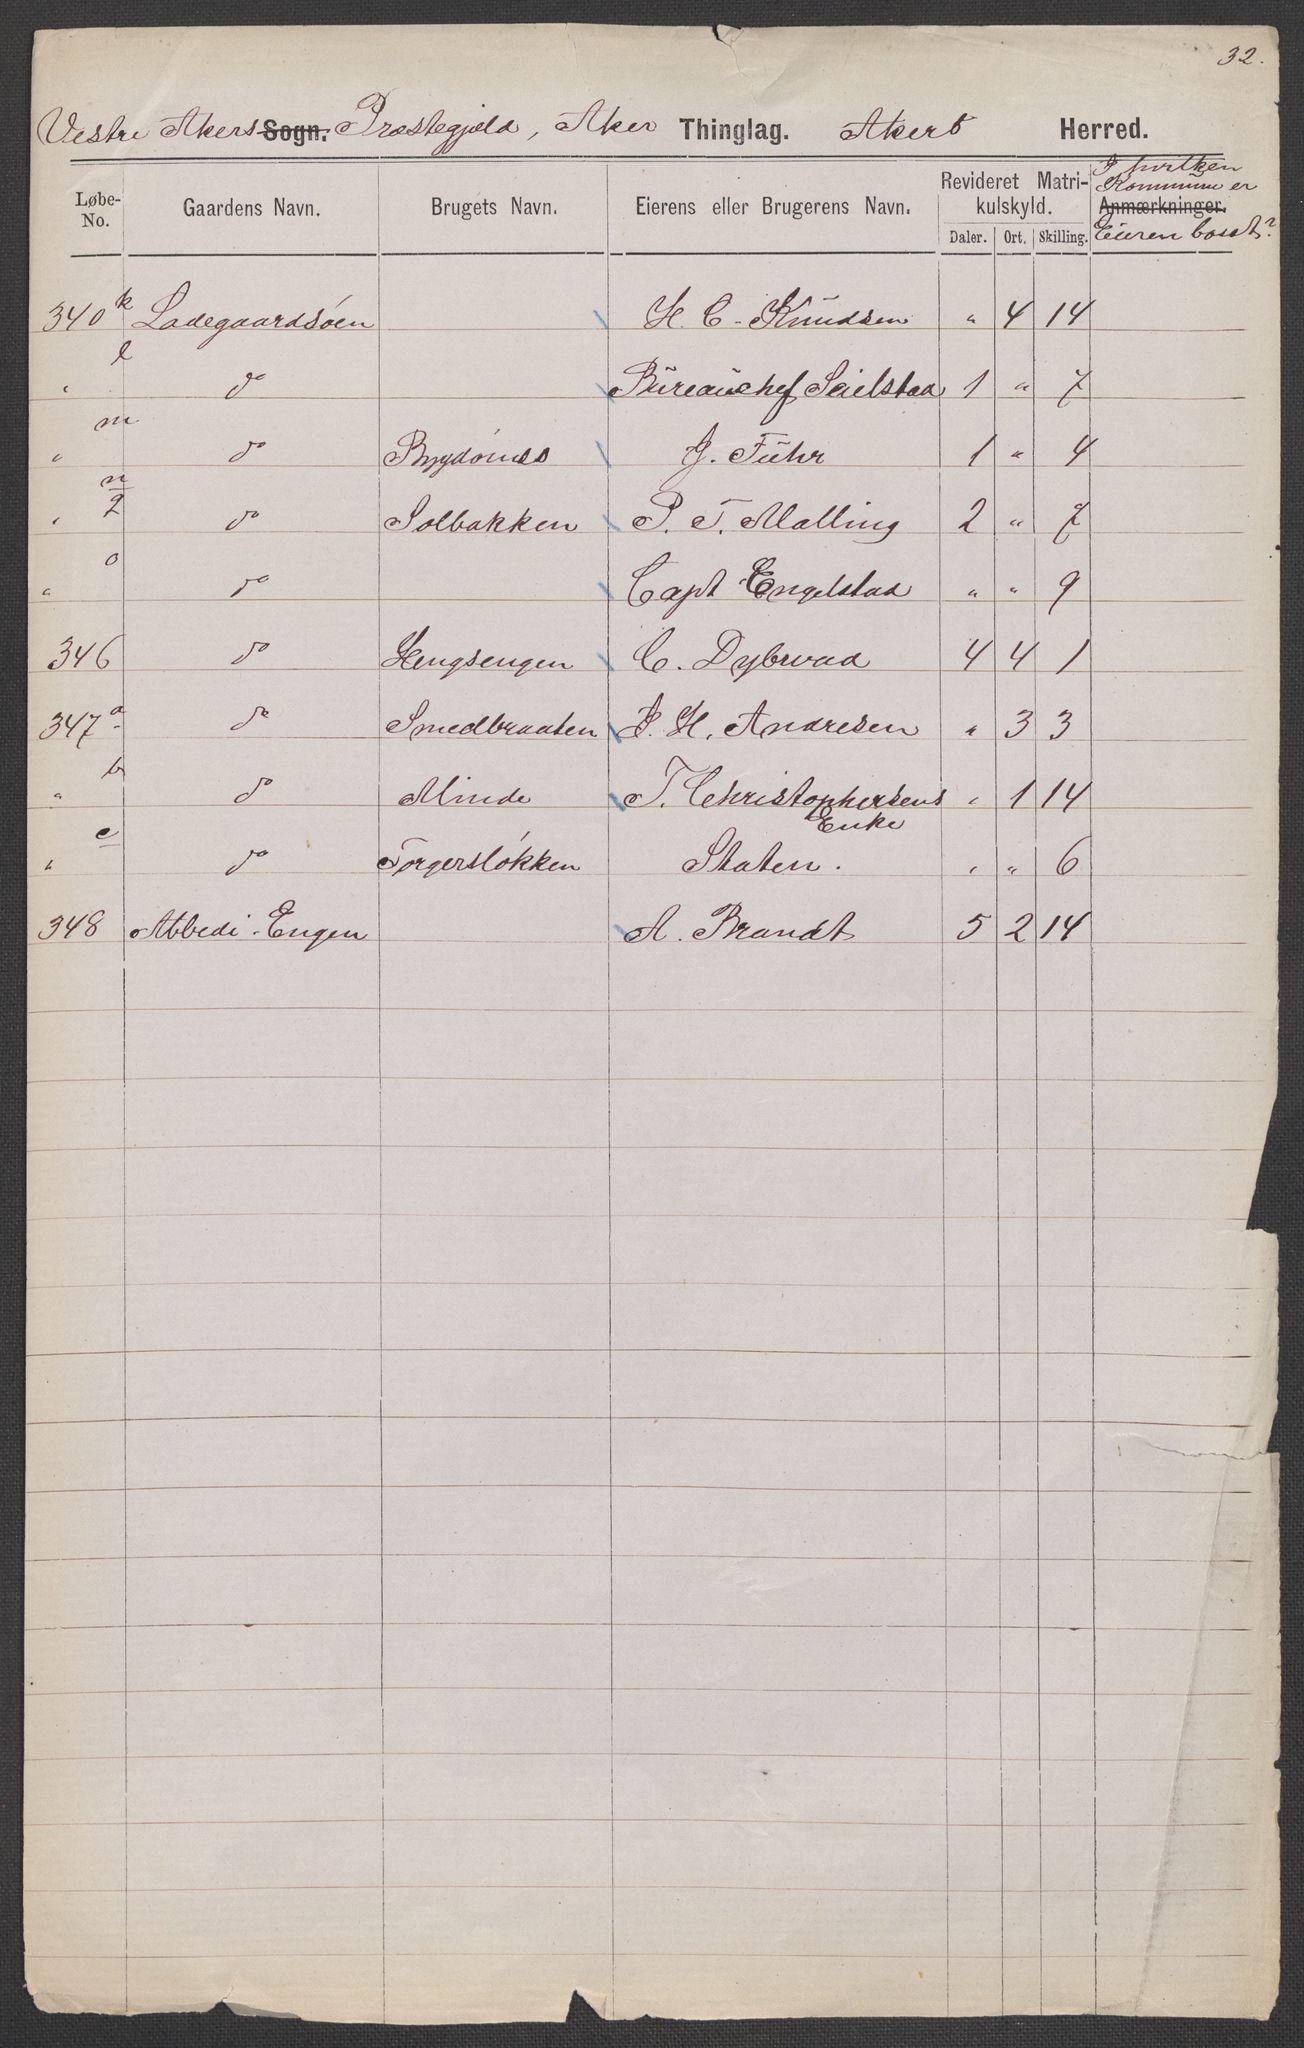 32.
Vestre Akers Sogn. Præstegjeld, Aker Thinglag. Akers Herred.
Løbe-No. Gaardens Navn. Brugets Navn. Eierens eller Brugerens Navn. Revideret Matrikulskyld. Daler. Ort. Skilling. Anmærkninger. I hvilken Kommune er Eieren bosat?
340 k Ladegaardsöen H. C. Knudsen " 4 14
" l do Bureauchef Seielstad 1 " 7
" m do Bygdönæs J. Führ 1 " 4
" n 2 do Solbakken P. T. Malling 2 " 7
" o do Capt Engelstad " " 9
346 do Hengsengen C. Dybwad 4 4 1
347 a do Smedbraaten J. H. Andresen " 3 3
" b do Minde T. Christophersens Enke " 1 14
" c do Torgerslökken Staten. " " 6
348 Abbedi-Engen A. Brandt 5 2 14